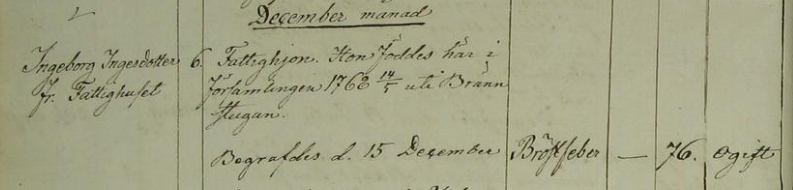 December månad
Ingeborg Ingesdotter 6. Fattighjon. Hon föddes här i
fr. Fattighuset församlingen 1762 14/5 uti Bränn
stugan.
Begrafdes d. 15 December Bröstfeber — 76. ogift